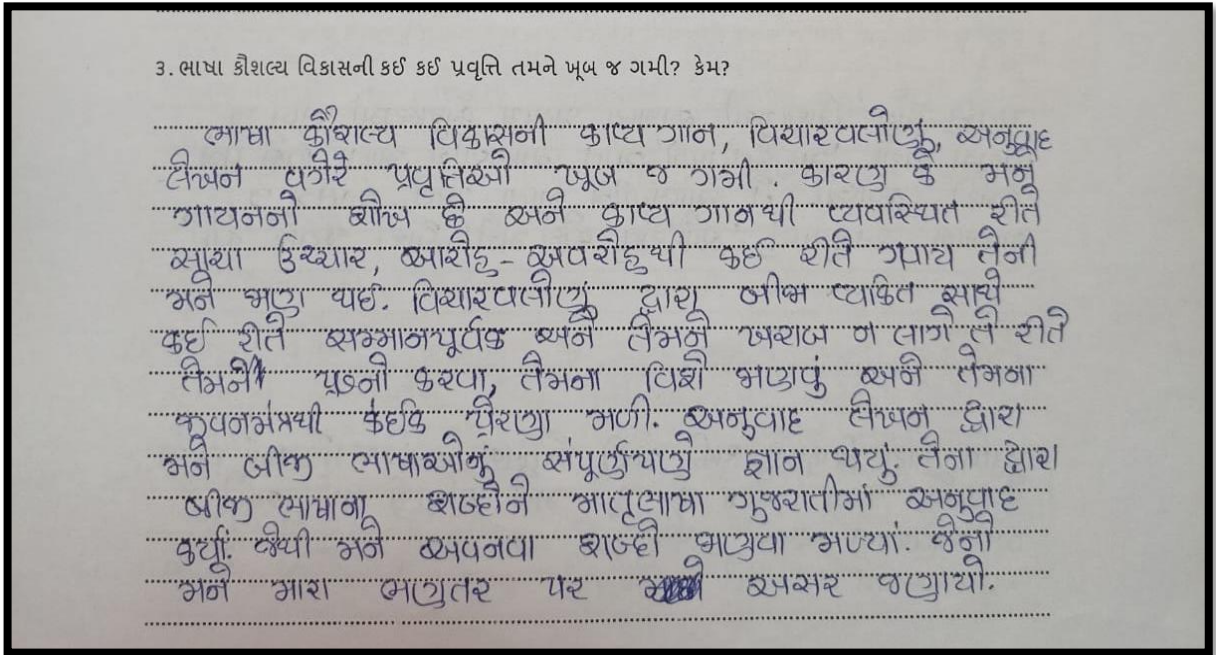 ૩. ભાષા કૌશલ્ય વિકાસની કઈ કઈ પ્રવૃત્તિ તમને ખૂબ જ ગમી? કેમ?
ભાષા કૌશલ્ય વિકાસની કાવ્ય ગાન, વિચારવલોણું, અનુવાદ
લેખન વગેરે પ્રવૃત્તિઓ ખૂબ જ ગમી. કારણ કે મને
ગાયનનો શોખ છે અને કાવ્ય ગાનથી વ્યવસ્થિત રીતે
સાચા ઉચ્ચાર, આરોહ-અવરોહથી કઈ રીતે ગવાય તેની
મને જાણ થઈ. વિચારવલોણું દ્વારા બીજા વ્યકિત સાથે
કઈ રીતે સમ્માનપૂર્વક અને તેમને ખરાબ ન લાગે તે રીતે
તેમને પ્રશ્નો કરવા, તેમના વિશે જાણવું અને તેમના
જીવનમંત્રથી કંઈક પ્રેરણા મળી. અનુવાદ લેખન દ્વારા
મને બીજી ભાષાઓનું સંપૂર્ણપણે જ્ઞાન થયું. તેના દ્વારા
બીજી ભાષાના શબ્દોને માતૃભાષા ગુજરાતીમાં અનુવાદ
કર્યા. જેથી મને અવનવા શબ્દો જાણવા મળ્યાં. જેનો
મને મારા ભણતર પર અસર જણાયો.